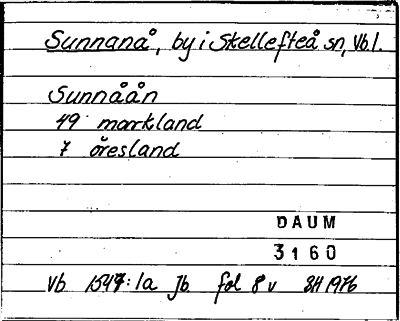 Sunnanå, by i Skellefteå sn, Vb l.
Sunnåån
49 markland
7 öresland
DAUM
3160
Vb 1547:1a Jb fol 8 v SH 1976